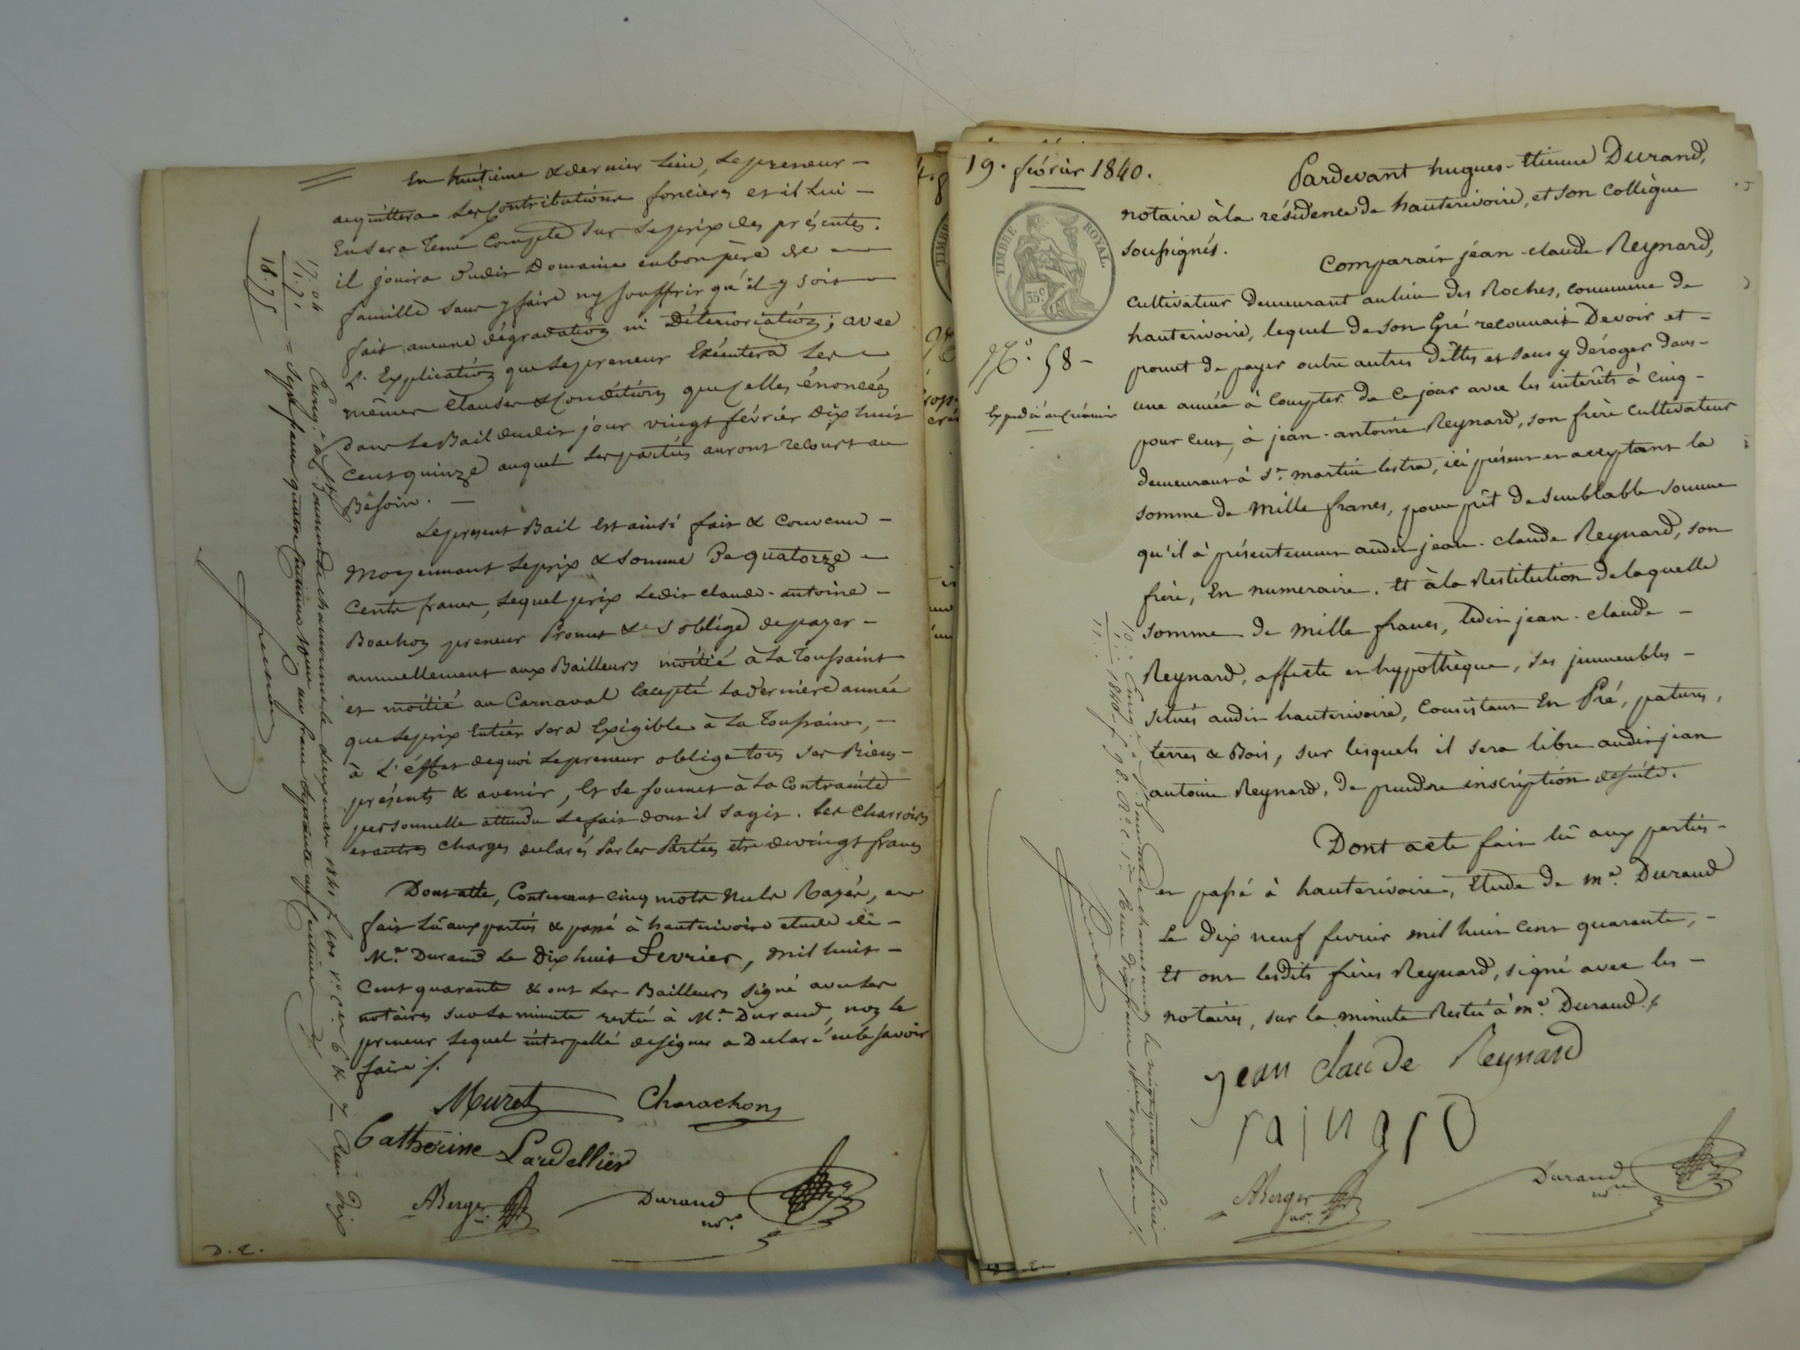 En huitième & dernier lieu, le preneur –
acquittera les contributions foncieres et il lui –
En sera tenu Compte sur le prix des présentes.
il jouira dudit Domaine en bon père de
famille sans y faire ny souffrir qu'il y soit
fait aucune dégradation ni Déterioriation; avec
L'Explication que le preneur Exécutera les
mêmes clauses & Conditions que celles énoncées
dans le Bail dudit jour vingt février dix huit
Cent quinze auquel les parties auront recourt au
Besoin. –
Le present Bail est ainsi fait & convenu –
Moyennant le prix & somme De quatorze –
Cents francs, lequel prix ledit claude-antoine –
Boachon preneur Promet & s'oblige de payer –
annuellement aux Bailleurs moitié à la Toussaint
et moitié au Carnaval Excepté la derniere année
que le prix Entier sera Exigible à la Toussaint, –
à L'éffet de quoi le preneur oblige tous ses Biens –
présents & avenir, Et se soumet à la Contrainte
personnelle attendu le fait dont il s'agit. Les Charrois
et autres charges declarés Par les Parties etre de vingt francs
Dont acte, Contenant cinq mots nuls Rayés, en
fait lu aux parties & passé à hauterivoire etude de –
Me. Durand Le Dix huit Fevrier, mil huit –
Cent quarante & ont les Bailleurs signé avec les
notaires sur la minute restée à Me. Durand, non le
preneur lequel interpellé de signer a Declaré ne le savoir
faire ./.
Muret Charachon
Catherine Lardellier
ABerger
Durand
nore.
D. E.
17. 04
1. 71
18. 75
19. février 1840.
TIMBRE ROYAL.
35c
No. 58 –
Pardevant hugues-Etienne Durand,
notaire à la résidence de hauterivoire, et son collègue
soussignés.
Comparait jean-claude Reynard,
cultivateur demeurant au lieu des Roches, commune de
hauterivoire, lequel de son Gré reconnait Devoir et –
promet de payer outre autres dettes et sans y déroger dans –
une année à Compter de ce jour avec les interêts à cinq –
pour cent, à jean-antoine Reynard, son frère cultivateur
demeurant à St. martin lestra, ici présent et acceptant la
somme de mille francs, pour prêt de semblable somme
qu'il à présentement audit jean-claude Reynard, son
frère, En numeraire. Et à la Restitution de laquelle
somme de mille francs, ledit jean-claude –
Reynard, affecte et hypothèque, ses immeubles –
situés audit hauterivoire, Consistant En Pré, patures,
terres & Bois, sur lesquels il sera libre audit jean
antoine Reynard, de prendre inscription de suite.
Dont acte fait lu aux parties –
et passé à hauterivoire, Etude de me. Durand
Le Dix neuf fevrier mil huit cent quarante, –
Et ont lesdits frères Reynard, signé avec les –
notaires, sur la minute Restée à me. Durand ./.
jean claude Reynard
rainard
ABerger
nore.
Durand
nore